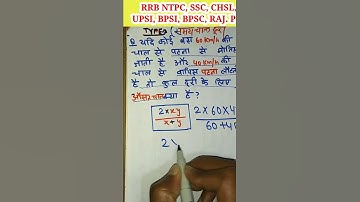 RRB NTPC, SSC, CHSL,
UPSI, BPSI, BPSC, RAJ. P
TYPE:- (समय चाल दूरी)
Q यदि कोई बस 60 Km/h की
चाल से पटना से
जाती है और 40 Km/h की
चाल से वापिस पटना
है तो कुल दूरी के लिए
औसत चाल क्या है ?
2 x x y / x + y
2 x 60 x 4 / 60 + 4
2